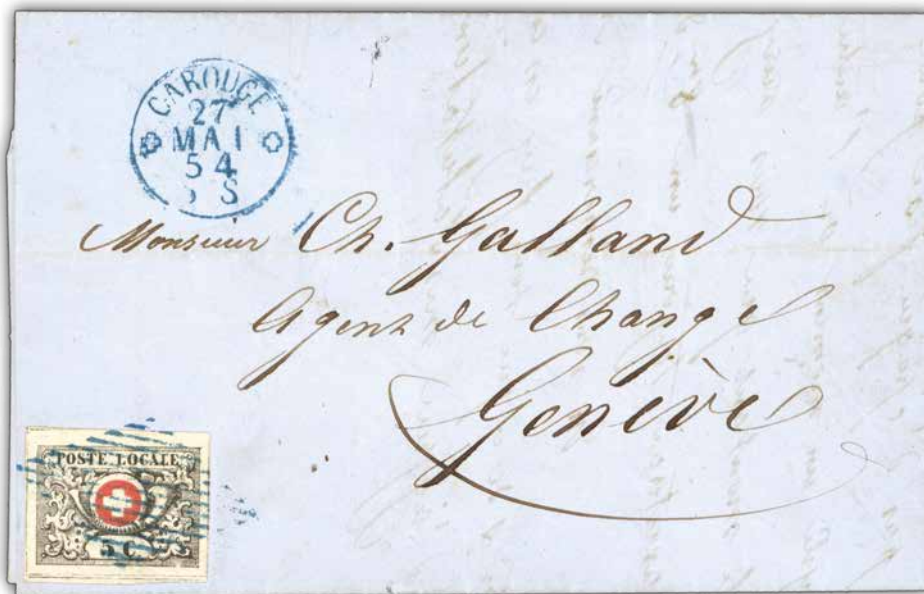 CAROUGE
27
MAI
54
S
Monsieur Ch. Galland
Agent de Change
Genève
POSTE LOCALE
5 C.